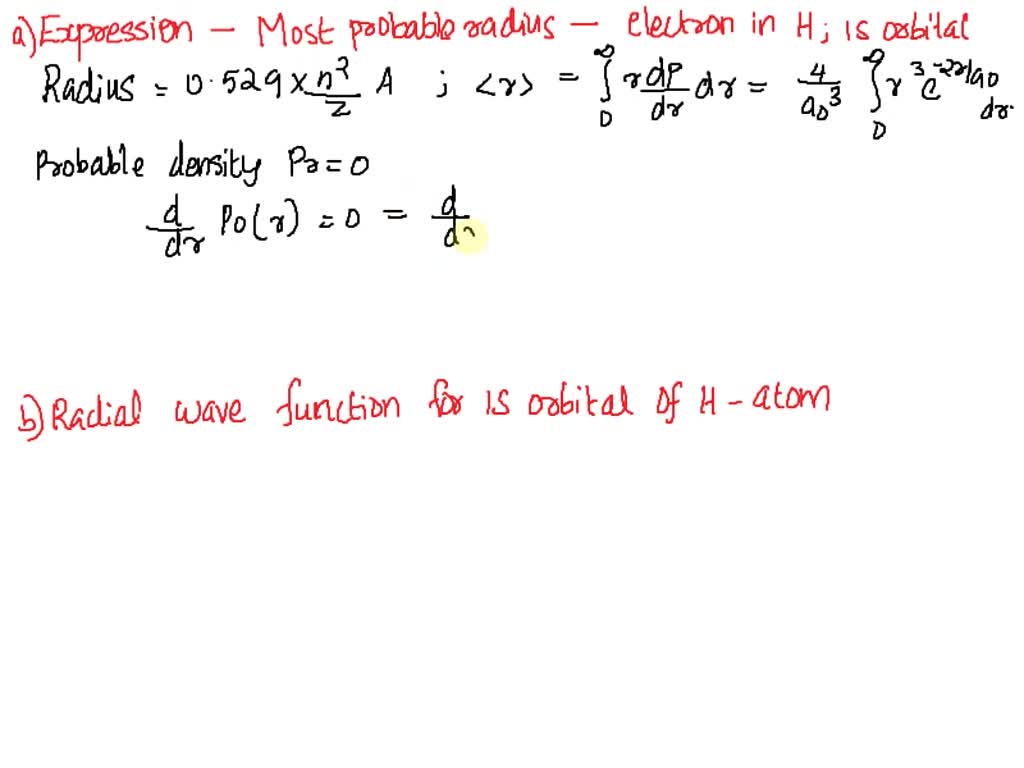 a) Expression - Most probable radius - electron in H; 1S orbital
Radius = 0.529 × n²/Z A ; <r> = ∫₀^∞ r dP/dr dr = 4/a₀³ ∫₀^∞ r³ e^-2r/a₀ dr.
Probable density Pr = 0
d/dr P₀(r) = 0 = d/d
b) Radial wave function for 1S orbital of H - atom